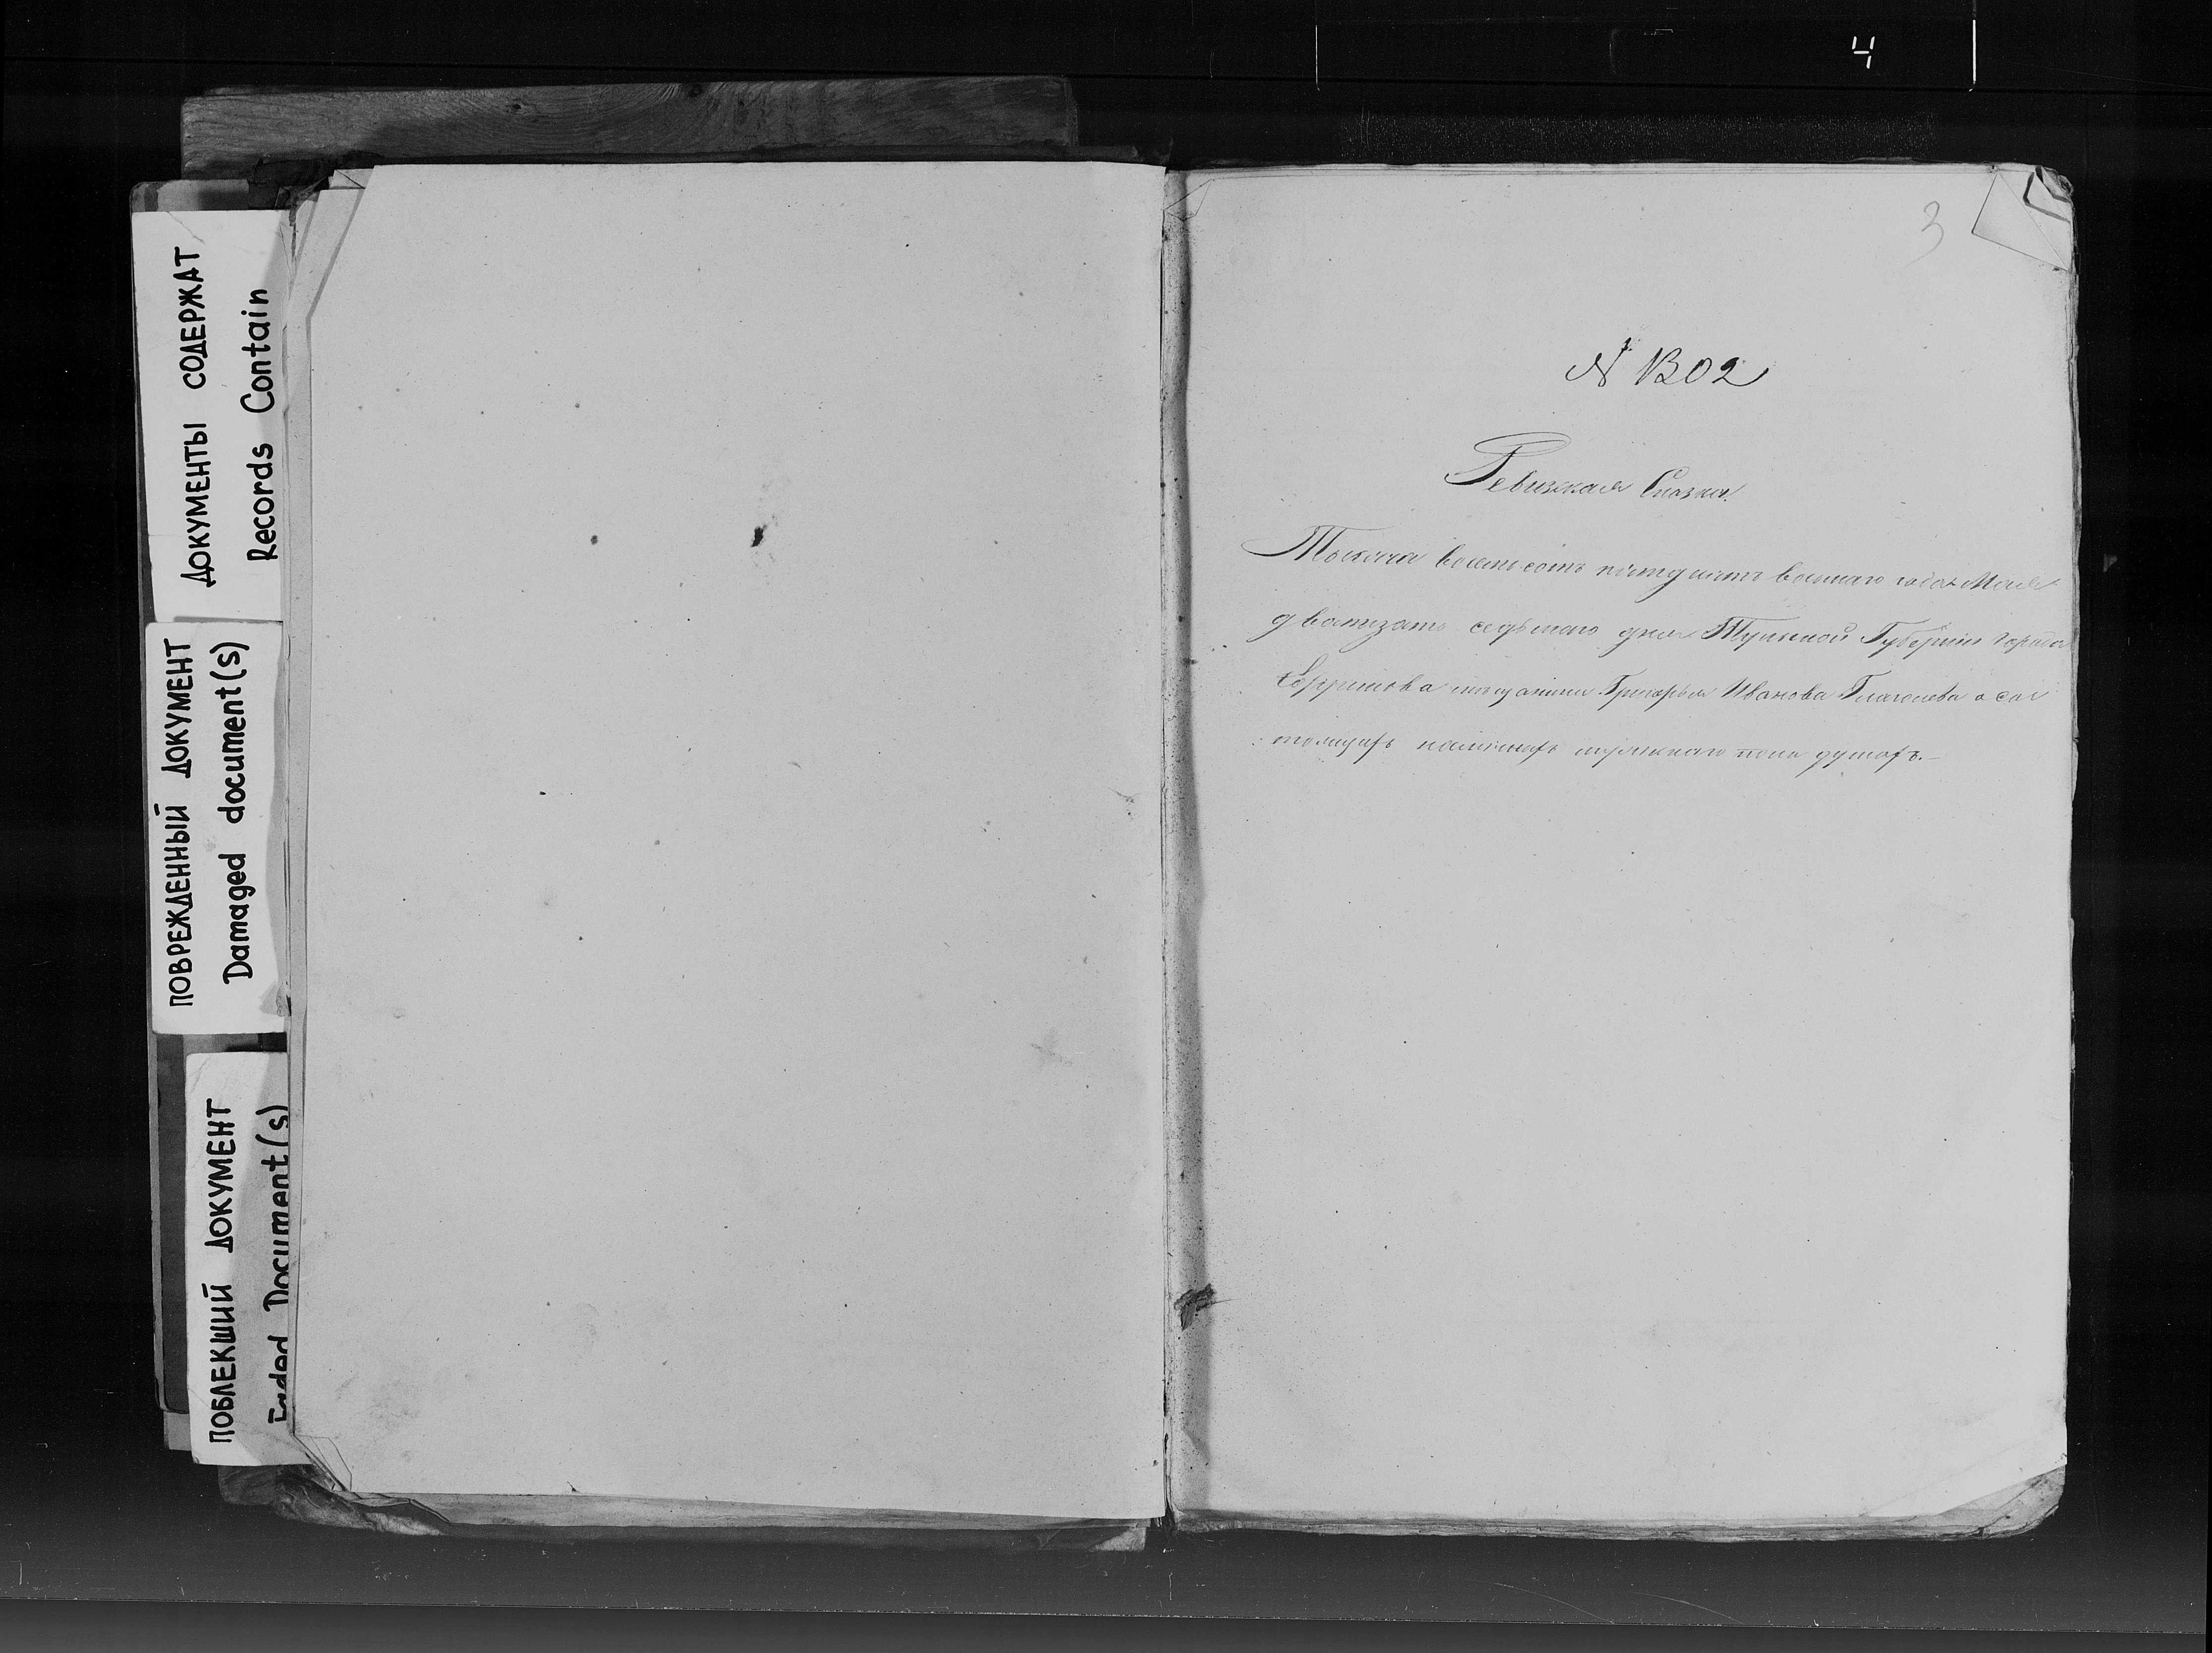 4
ДОКУМЕНТЫ СОДЕРЖАТ
Records Contain
ПОВРЕЖДЕННЫЙ ДОКУМЕНТ
Damaged document(s)
ПОБЛЕКШИЙ ДОКУМЕНТ
Faded Document(s)
3
N 1302
Ревизская Сказка.
Тысяча восемьсотъ пятдесятъ восьмаго года Мая
дватцать седьмаго дня Тульской Губерніи города
Ефремова мещанина Григорья Иванова о сос
мужескаго пола душахъ.